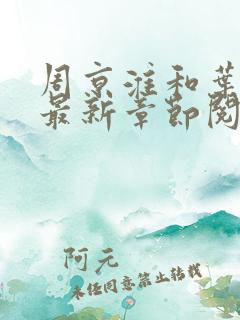 周京淮和葉
最新章節閱
阿元
未经同意禁止转载